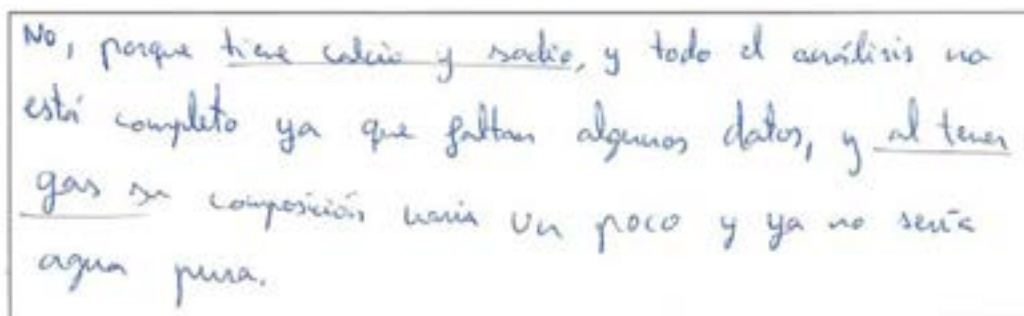 No, porque tiene calcio y sodio, y todo el análisis no
está completo ya que faltan algunos datos, y al tener
gas su composición varia un poco y ya no sería
agua pura.